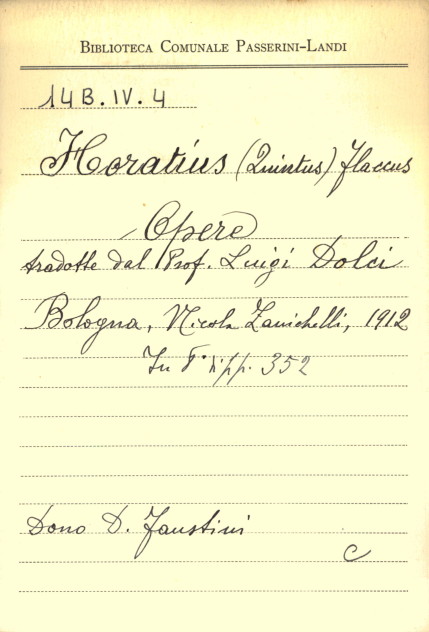 BIBLIOTECA COMUNALE PASSERINI-LANDI
14B.IV.4
Horatius (Quintus) Flaccus
Opere
tradotte dal Prof. Luigi Dolci
Bologna, Nicola Zanichelli, 1912
In pp. 352
Dono D. Faustini
C